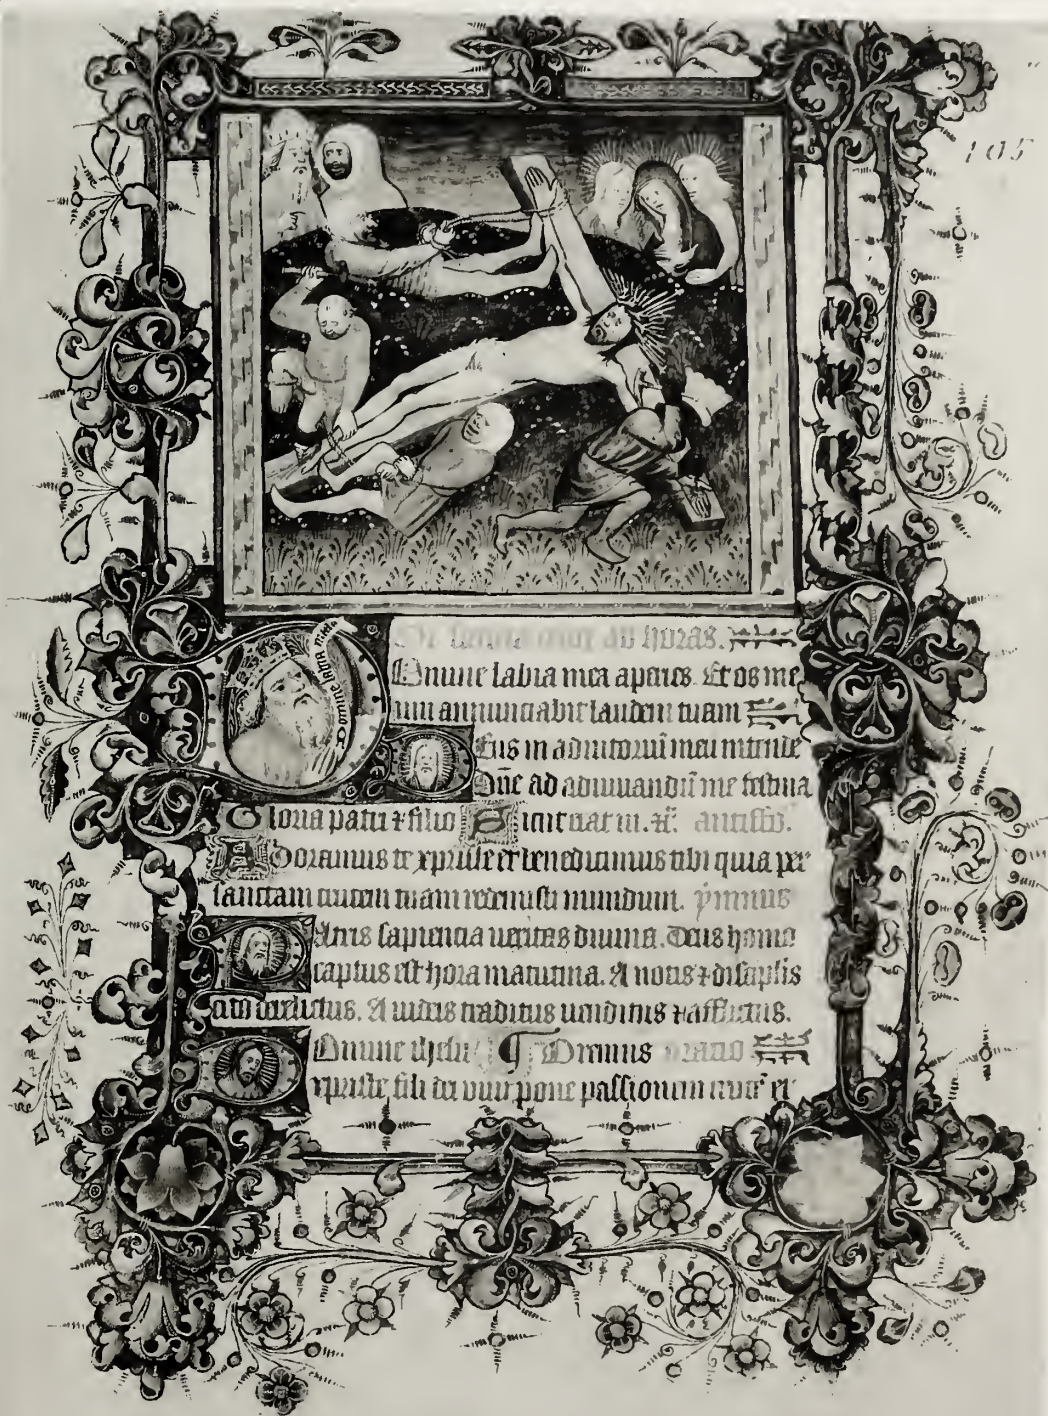 105
De sancta cruce ad horas.
Domine labia mea aperies. Et os me
um annunciabit laudem tuam
Deus in adiutoriū meū intende
Dn̄e ad adiuuandū me festina
Gloria patri ⁊ filio Sicut erat in. ⁊c̄.
Adoramus te xp̄iste et benedicimus tibi quia per
sanctam crucem tuam redemisti mundum. ymnus
Patris sapiencia ueritas diuina. Deus homo
captus est hora matutina. A notis ⁊ discipulis
cito derelictus. A iudeis traditus uenditus ⁊ afflictus.
Domine ihesu ¶ Oremus oratio
xp̄iste fili dei uiui pone passionem